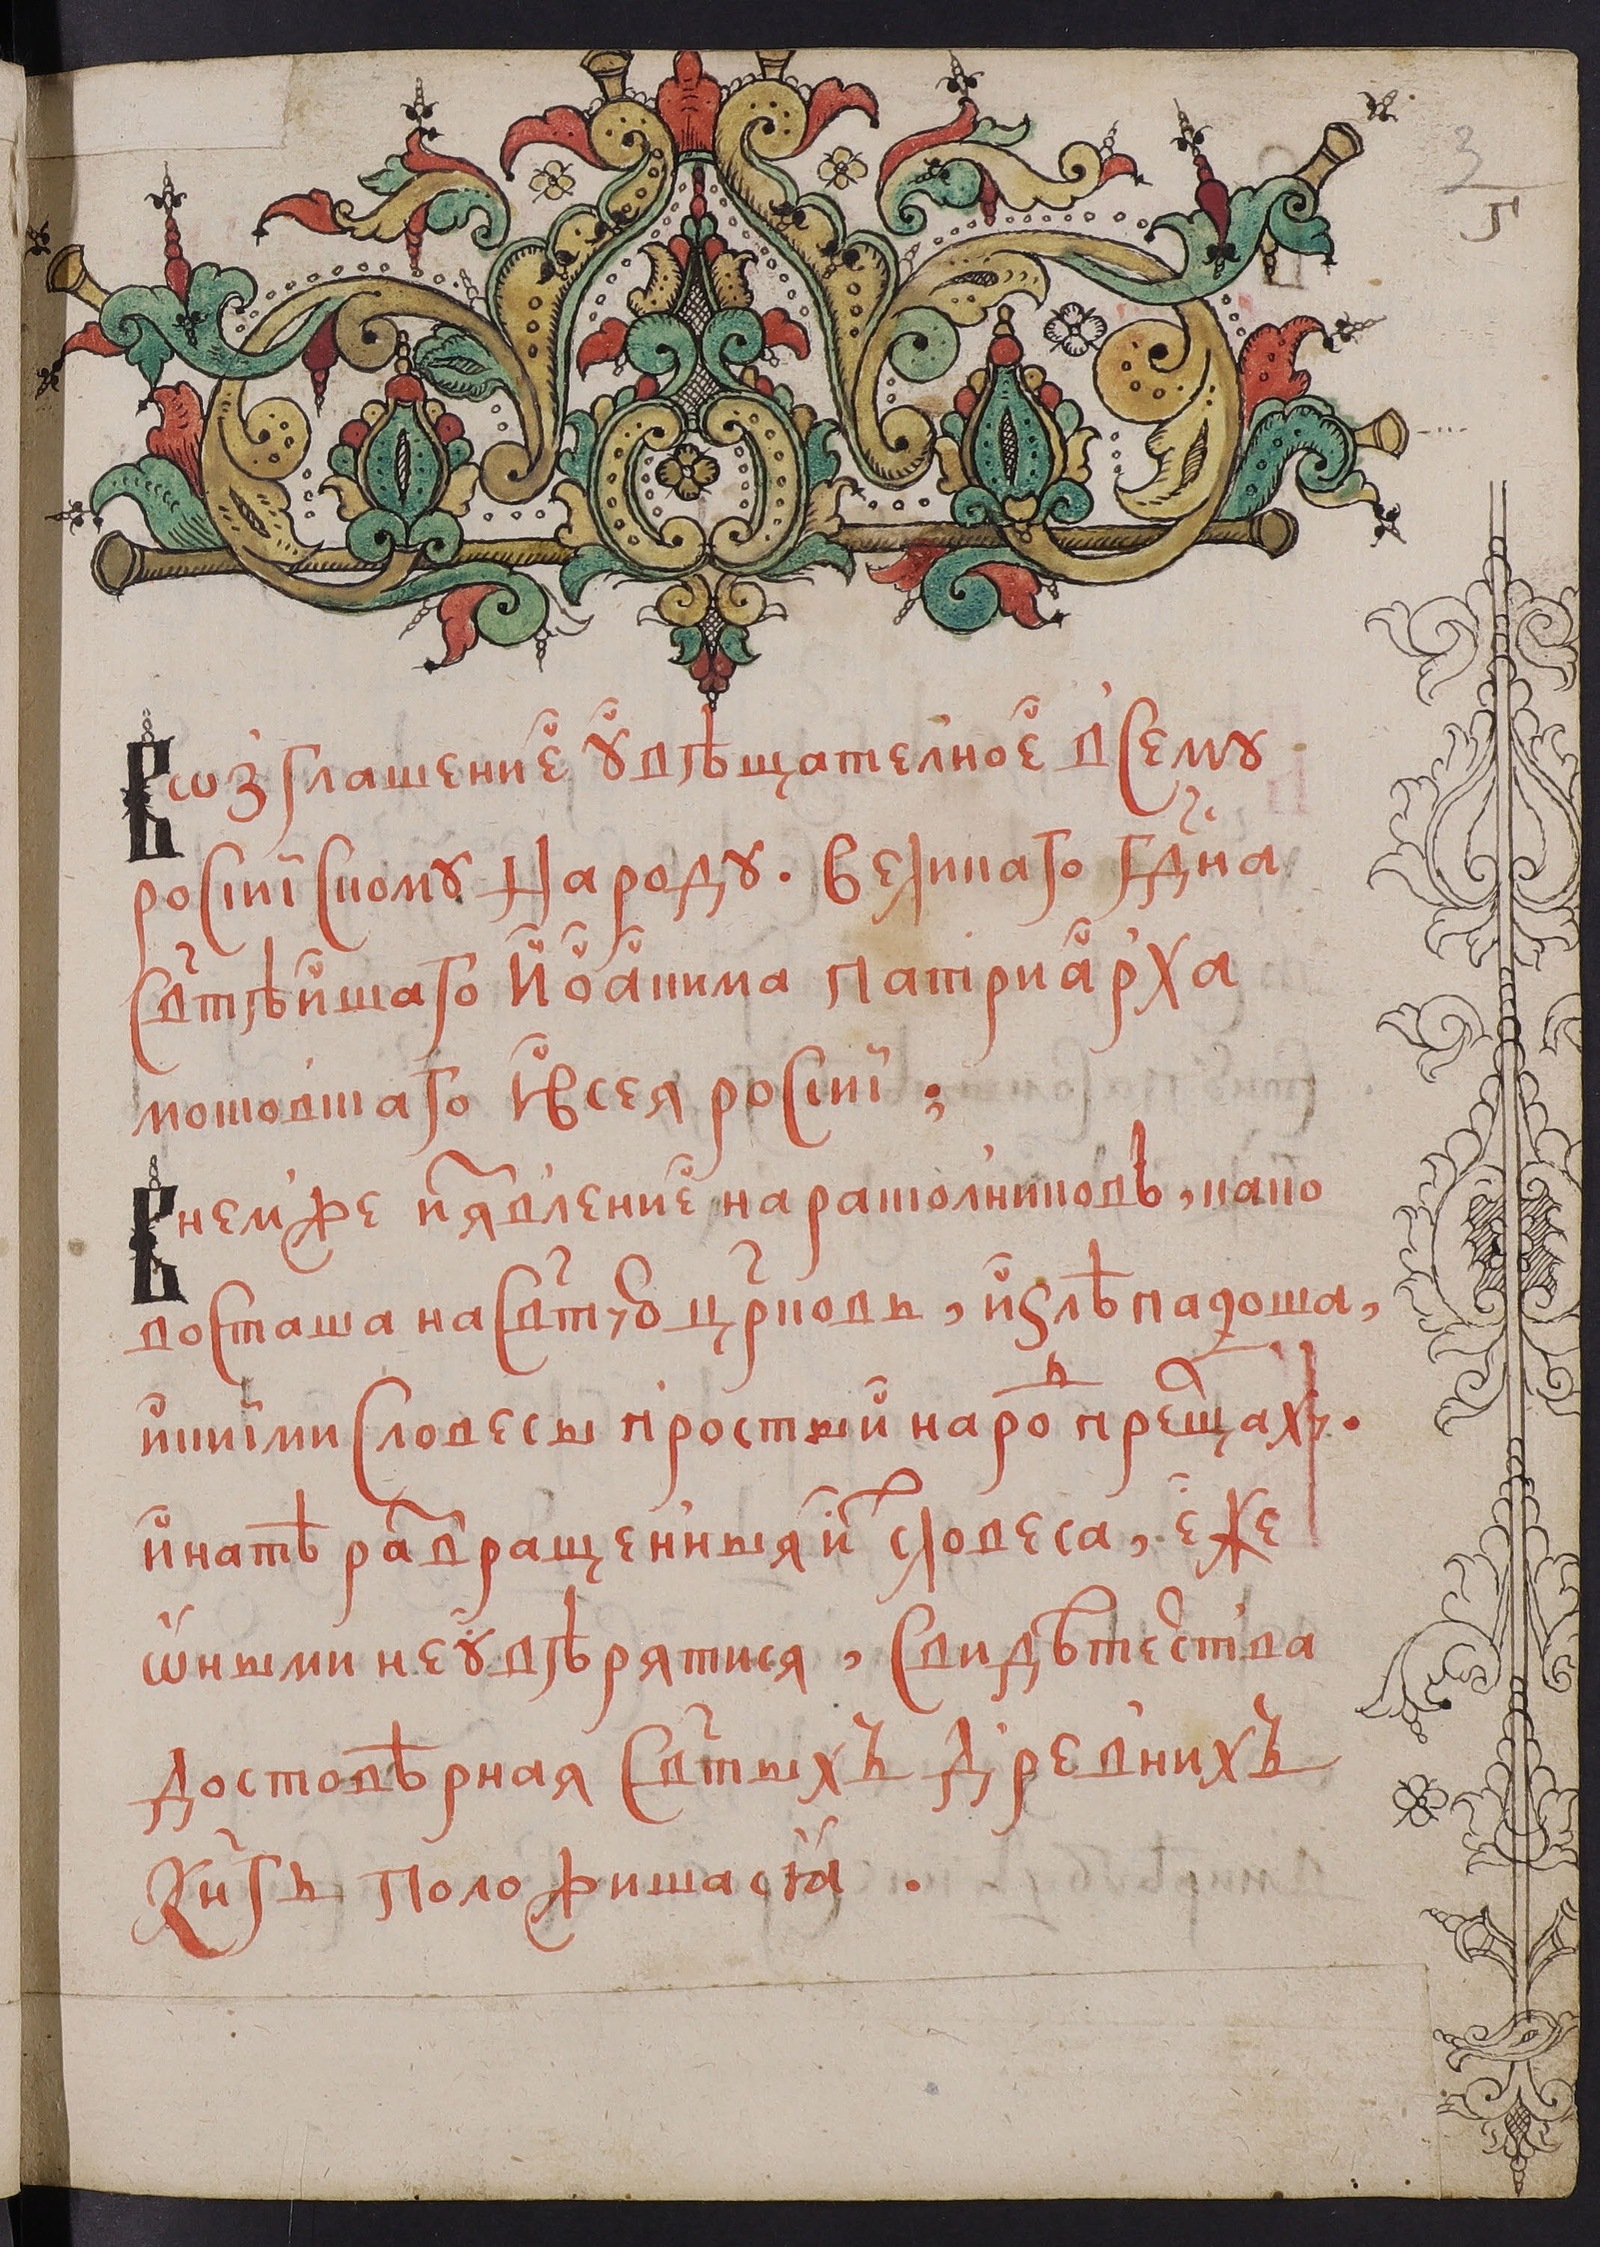 3
Г
Воз̾глашение увѣщателное всему
росиіскому народу. великаго гдⷭ҇на
свт҃ѣйшаго иоакима патриар̾ха
московшаго ивсея росиі ;
Внемже иявление нараскол̾никовъ, како
восташа насвт҃ую цр҃ковь, излѣ падоша,
икиіми словесы простый нароⷣ прещаху.
инатѣ развращен̾ныя иⷯ словеса, еже
ѿными неувѣрятися, свидѣтеⷧства
достовѣрная свт҃ыхъ древнихъ
Кни҃гъ положишася .